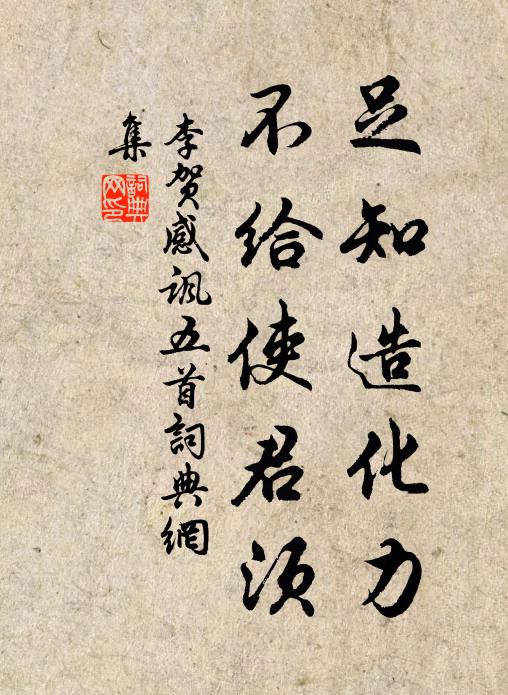 足知造化力
不给使君须
李贺感讽五首詞典網
集
詞典网印